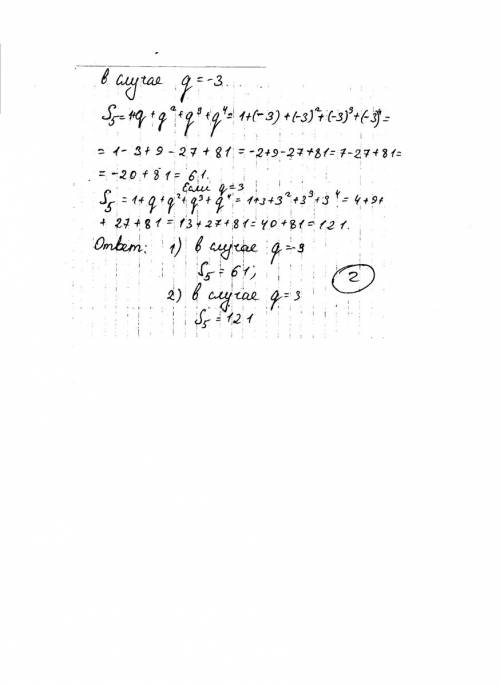 в случае q = -3.
S₅=1+q+q²+q³+q⁴=1+(-3)+(-3)²+(-3)³+(-3)⁴=
=1-3+9-27+81=-2+9-27+81=7-27+81=
=-20+81=61.
Если q=3
S₅=1+q+q²+q³+q⁴=1+3+3²+3³+3⁴=4+9+
+27+81=13+27+81=40+81=121.
Ответ: 1) в случае q=-3
S₅=61;
2
2) в случае q=3
S₅=121